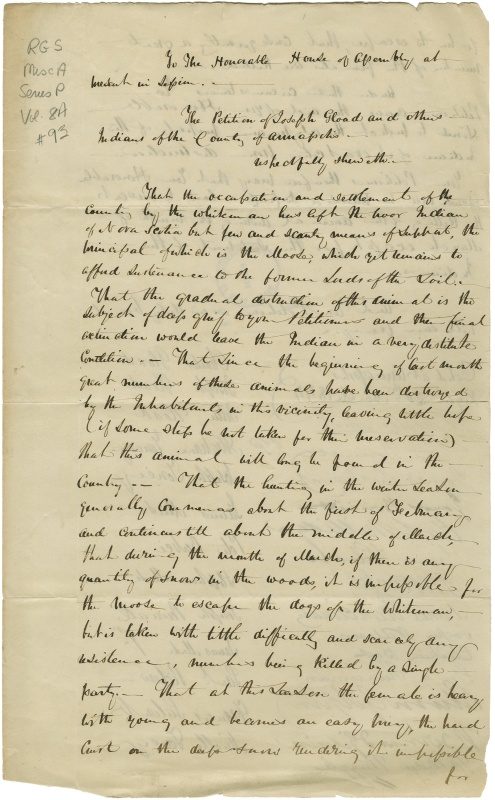 RG5
Misc A
Series P
Vol. 8A
#93
To The Honorable House of Assembly at
present in Session. -
The Petition of Joseph Gload and others
Indians of the County of Annapolis -
respectfully sheweth. -
That the occupation and settlement of the
Country by the whiteman has left the poor Indian
of Nova Scotia but few and scanty means of support, the
principal of which is the Moose, which yet remains to
afford sustenance to the former Lords of the Soil. -
That the gradual destruction of this animal is the
subject of deep grief to your Petitioners and the final
extinction would leave the Indian in a very destitute
Condition. - That since the beginning of last month
great numbers of these animals have been destroyed
by the Inhabitants in this vicinity, leaving little hope
(if some steps be not taken for their preservation)
that this animal will long be found in the
Country. - That the hunting in the winter Season
generally commences about the first of February
and continues till about the middle of March,
that during the month of March, if there is any
quantity of snow in the woods, it is impossible for
the Moose to escape the dogs of the Whiteman,
but is taken with little difficulty and scarcely any
resistence, numbers being killed by a single
party. - That at this Season the female is heavy
with young and becomes an easy prey, the hard
Crust on the deep snow rendering it impossible
for